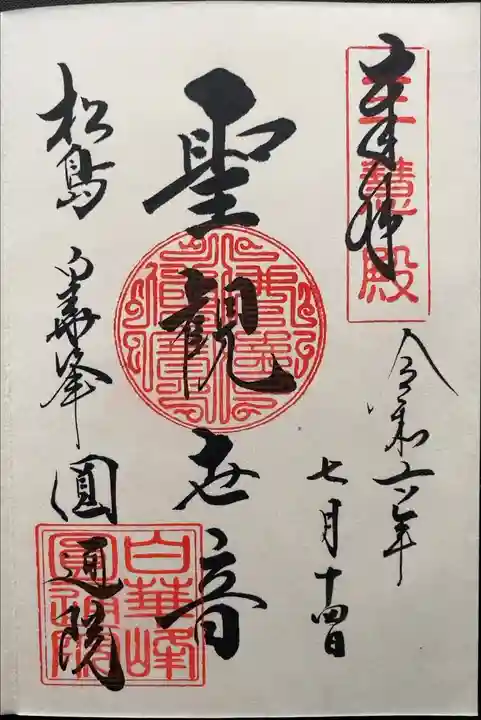 奉拝
三慧殿
令和六年
七月十四日
聖観世音
松島 白華峯 圓通院
白華峰
圓通院